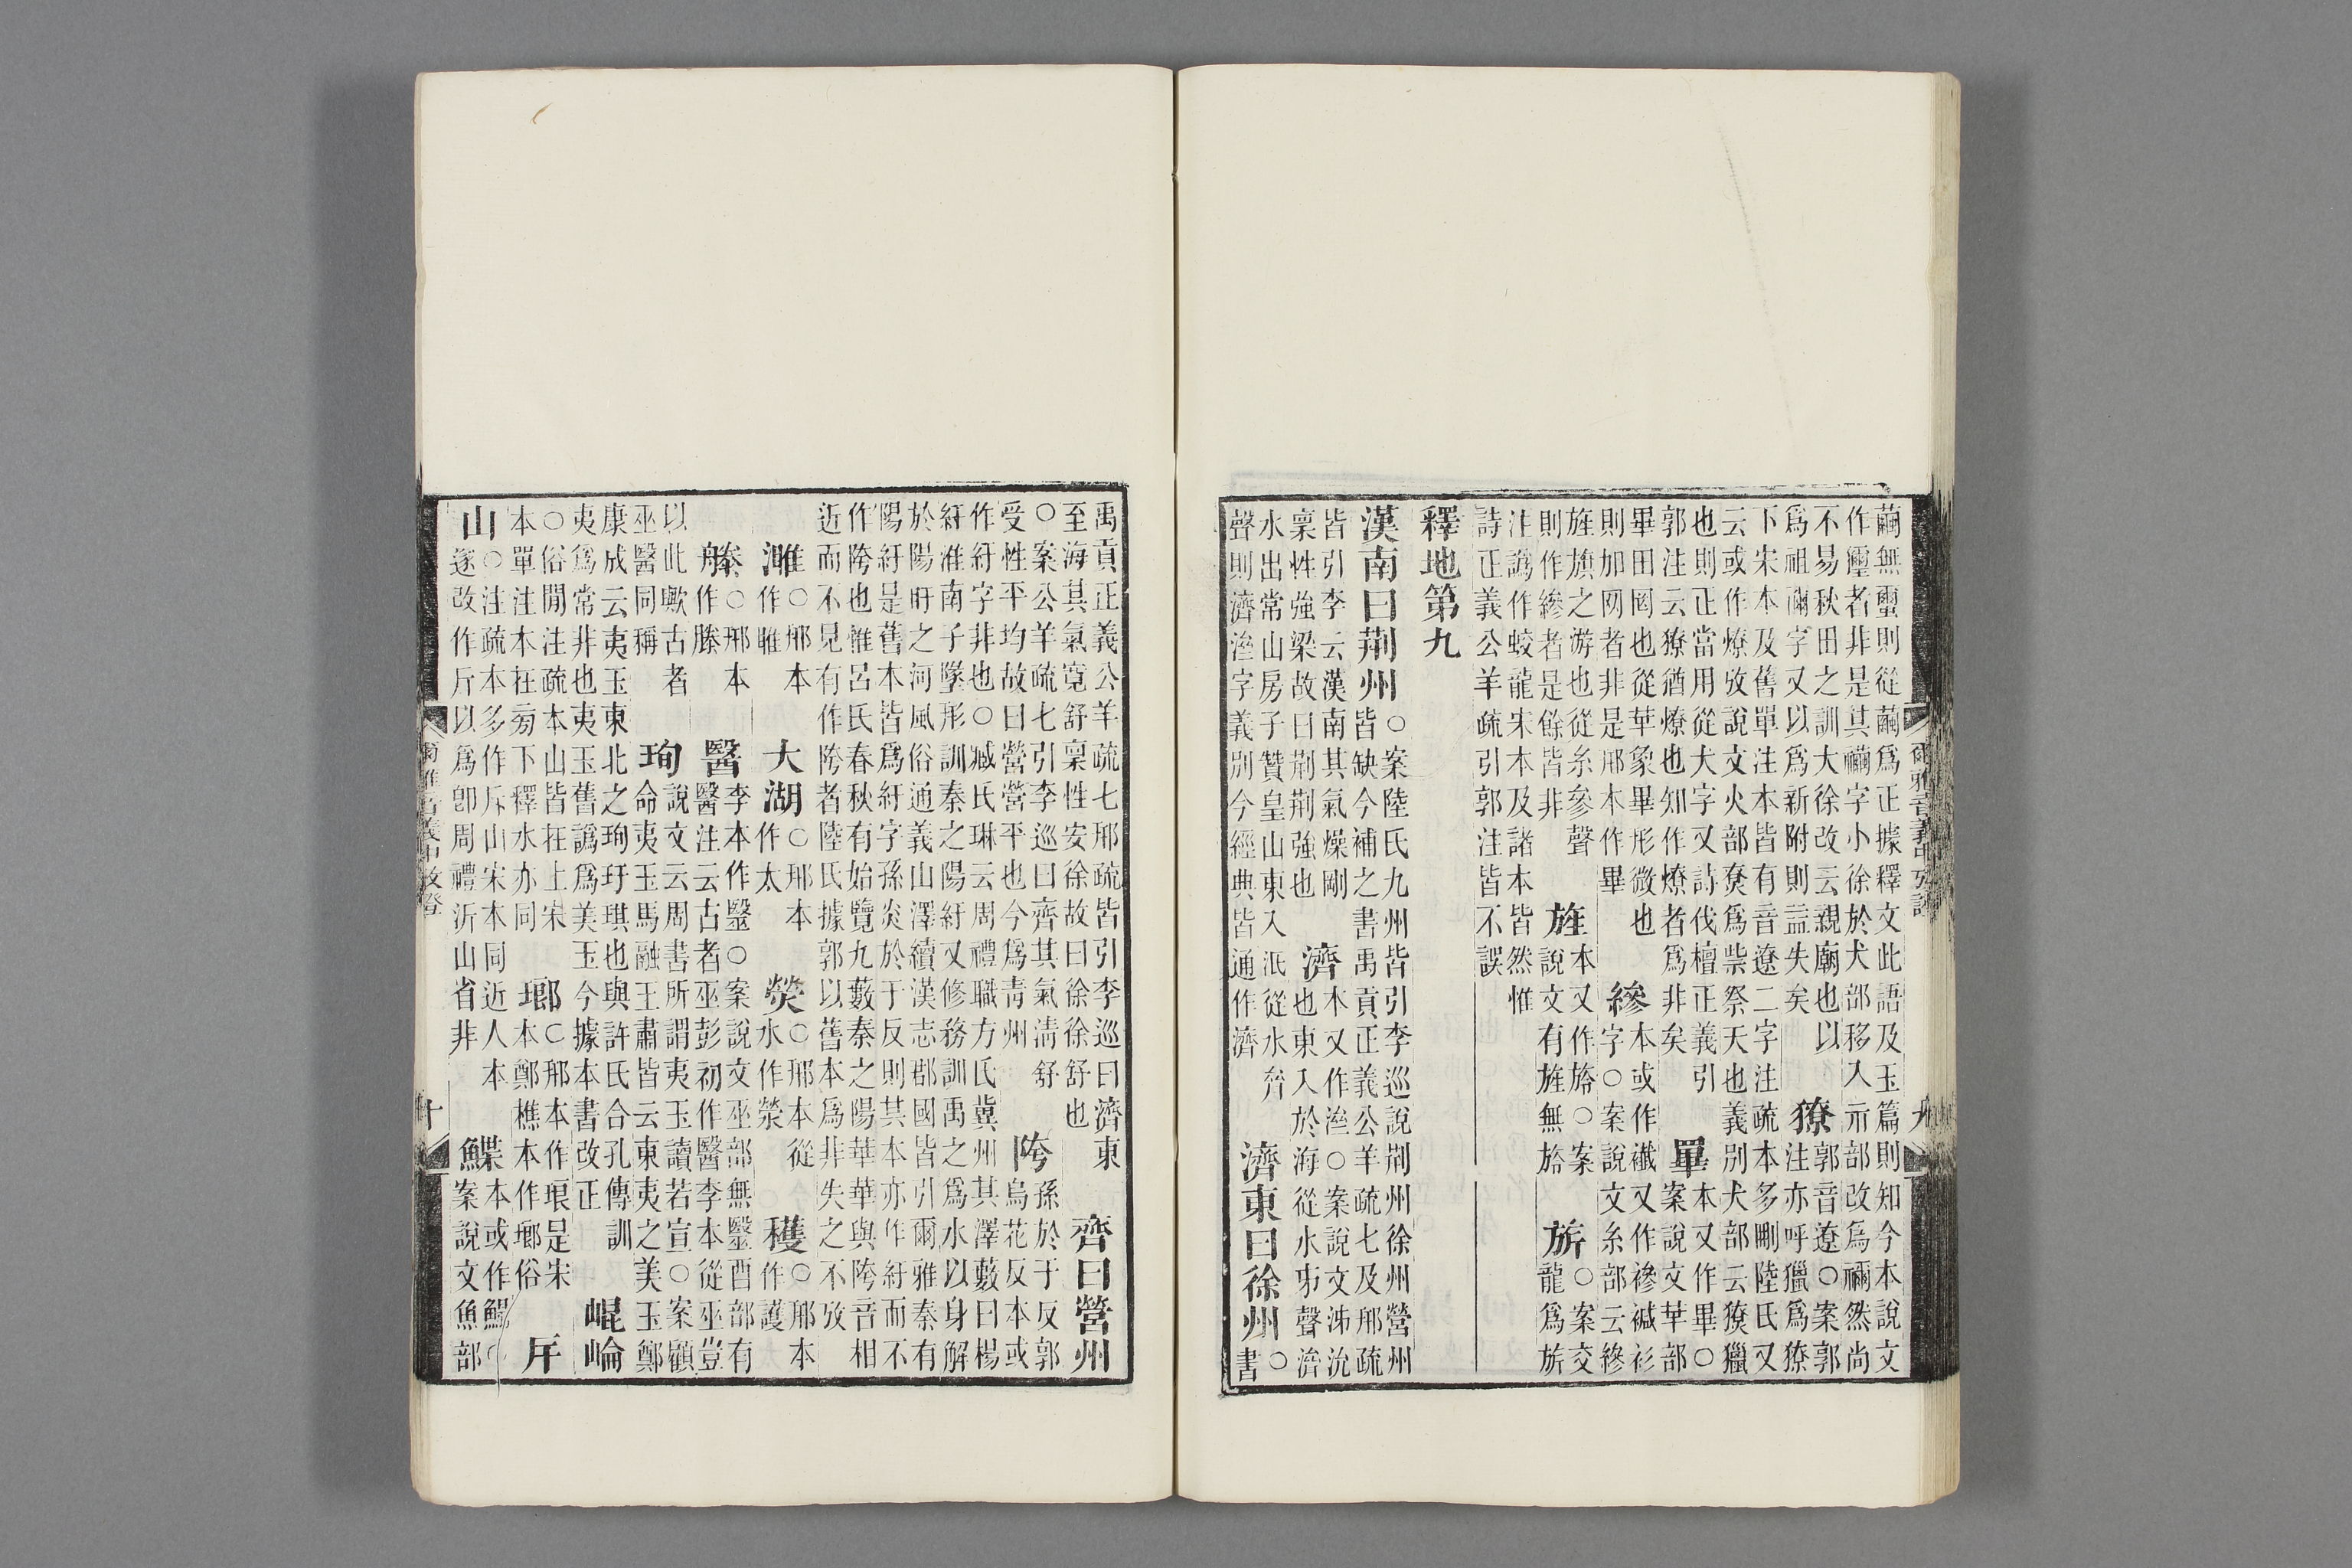 繭無璽則從繭爲正據釋文此語及玉篇則知今本說文
作璽者非是其繭字小徐於犬部移入示部改爲禰然尚
不易秋田之訓大徐改云親廟也以
爲祖禰字又以爲新附則益失矣
獠
郭音遼○案郭
注亦呼獵爲獠
下宋本及舊單注本皆有音遼二字注疏本多刪陸氏又
云或作燎攷說文火部尞爲祡祭天也義別犬部云獠獵
也則正當用從犬字又詩伐檀正義引
郭注云獠猶燎也知作燎者爲非矣
畢
本又作畢○
案說文𠦒部
畢田罔也從𠦒象畢形微也
則加网者非是邢本作畢
縿
本或作襳又作襂衫
字○案說文糸部云縿
旌旗之游也從糸參聲
則作縿者是餘皆非
旌
本又作旍○案
說文有旌無旍
旂
○案交
龍爲旂
注譌作蛟龍宋本及諸本皆然惟
詩正義公羊疏引郭注皆不誤
釋地第九
漢南曰荊州
○案陸氏九州皆引李巡說荊州徐州營州
皆缺今補之書禹貢正義公羊疏七及邢疏
皆引李云漢南其氣燥剛
稟性強梁故曰荊荊強也
濟
本又作泲○案說文泲沇
也東入於海從水𠂔聲濟
水出常山房子贊皇山東入泜從水齊
聲則濟泲字義別今經典皆通作濟
濟東曰徐州
○
書
禹貢正義公羊疏七邢疏皆引李巡曰濟東
至海其氣寬舒稟性安徐故曰徐徐舒也
齊曰營州
○案公羊疏七引李巡曰齊其氣清舒
受性平均故曰營營平也今爲青州
陓
孫於于反郭
烏花反本或
作紆字非也○臧氏琳云周禮職方氏冀州其澤藪曰楊
紆淮南子墜形訓秦之陽紆又修務訓禹之爲水以身解
於陽盱之河風俗通義山澤續漢志郡國皆引爾雅秦有
陽紆是舊本皆爲紆字孫炎於于反則其本亦作紆而不
作陓也惟呂氏春秋有始覽九藪秦之陽華華與陓音相
近而不見有作陓者陸氏據郭以舊本爲非失之不攷
濉
○邢本
作睢
大湖
○邢本
作太
熒
○邢本從
水作滎
穫
○邢本
作護
○邢本
作滕
醫
李本作毉○案說文巫部無毉酉部有
醫注云古者巫彭初作醫李本從巫豈
以此歟古者
巫醫同稱
珣
說文云周書所謂夷玉讀若宣○案顧
命夷玉馬融王肅皆云東夷之美玉鄭
康成云夷玉東北之珣玗琪也與許氏合孔傳訓
夷爲常非也夷玉舊譌爲美玉今據本書改正
崐崘
○俗閒注疏本山皆在上宋
本單注本在旁下釋水亦同
瑯
○邢本作琅是宋
本鄭樵本作瑯俗
斥山
○注疏本多作斥山宋本同近人本
遂改作斤以爲卽周禮沂山省非
鰈
本或作鰨○
案說文魚部